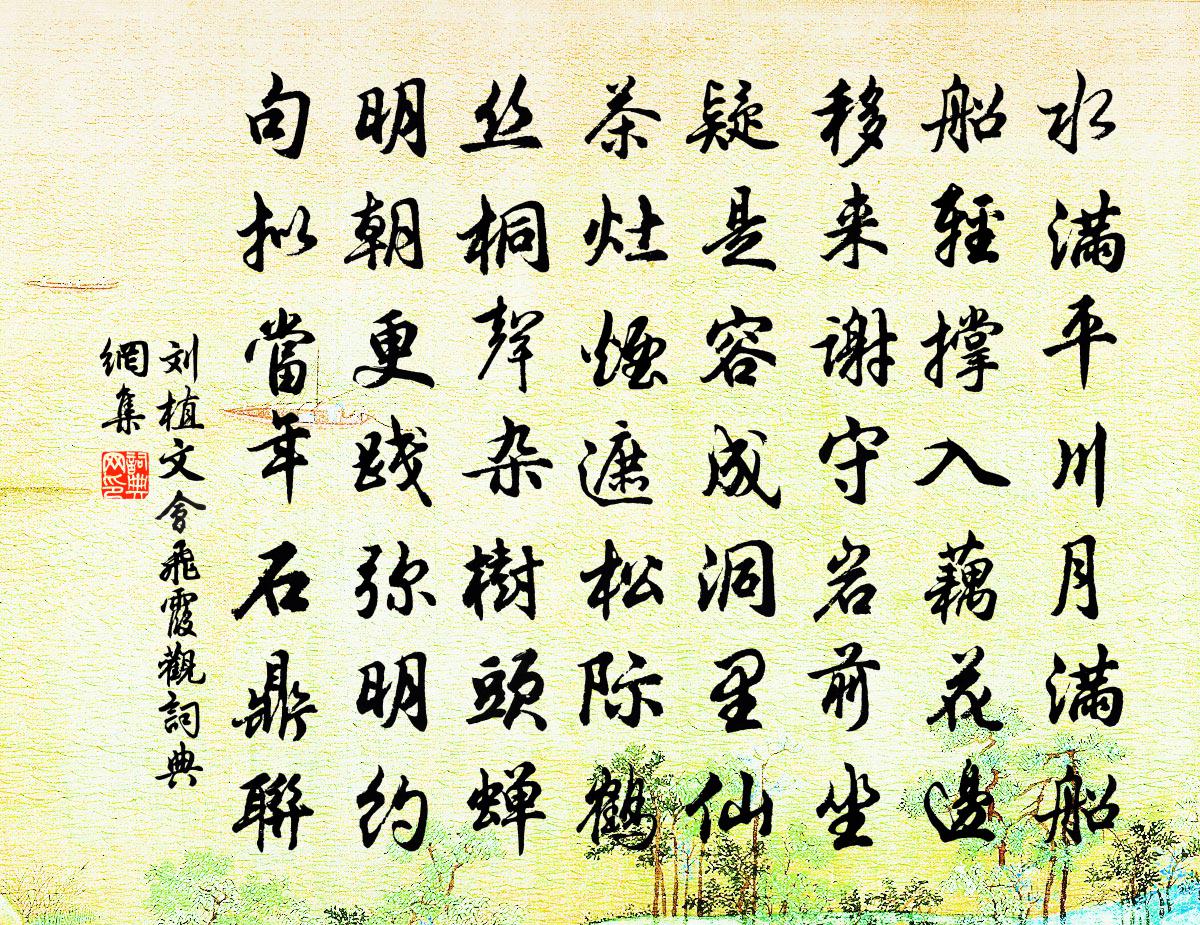 水满平川月满船
船轻撑入藕花边
移来谢守岩前坐
疑是容成洞里仙
茶灶烟遮松际鹤
丝桐声杂樹頭蝉
明朝更践弥明约
句拟當年石鼎聯
刘植文會飛霞觀詞典
網集
詞典网印